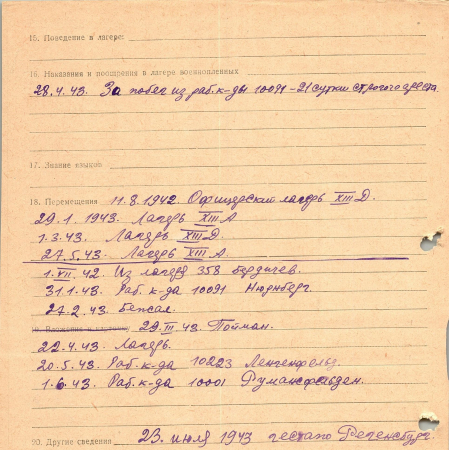 15. Поведение в лагере:
16. Наказания и поощрения в лагере военнопленных
28.4.43. За побег из раб. к-ды 10091 - 21 сутки строгого ареста
17. Знание языков
18. Перемещения 11.8.1942. Офицерский лагерь XIII Д.
29.1.1943. Лагерь XIII А
1.3.43. Лагерь XIII Д.
27.5.43. Лагерь XIII А.
1.VII.42. Из лагеря 358 Бердичев.
31.1.43. Раб. к-да 10091 Нюрнберг.
27.2.43. Бежал.
19. 29.III.43. Пойман.
22.4.43. Лагерь.
20.5.43. Раб. к-да 10223 Ленгенфельд
1.6.43. Раб. к-да 10001 Румансфельден.
20. Другие сведения 23. июля 1943 гестапо Регенсбург